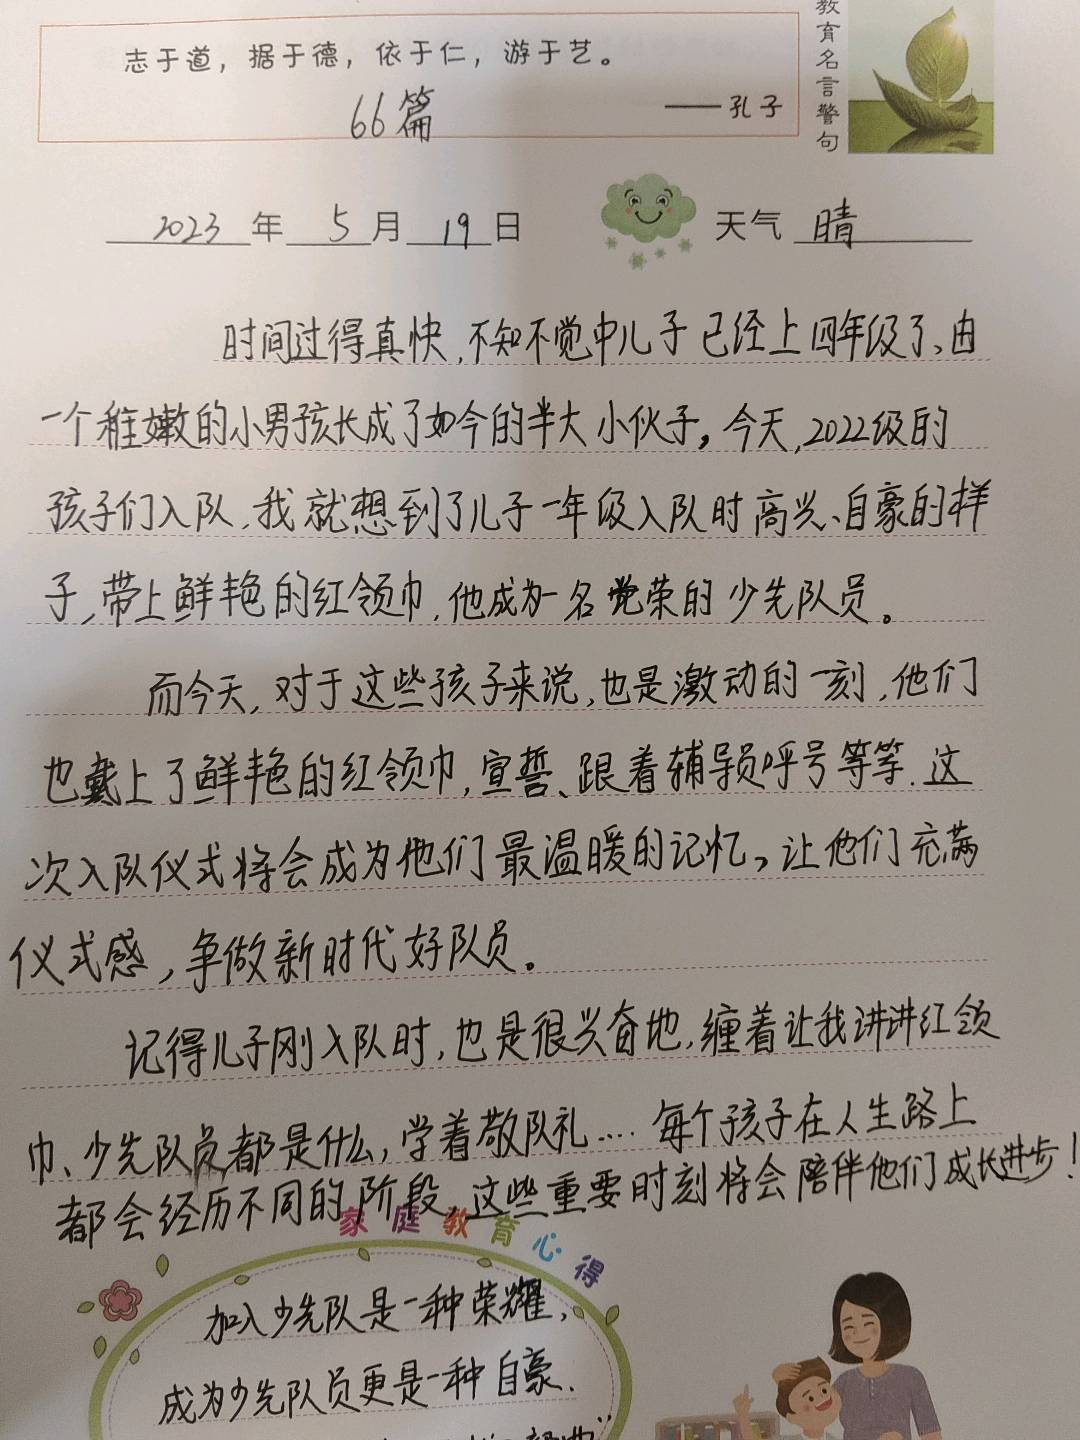 志于道，据于德，依于仁，游于艺。
66篇
——孔子
教育名言警句
2023年5月19日
天气 晴
时间过得真快，不知不觉中儿子已经上四年级了、由
一个稚嫩的小男孩长成了如今的半大小伙子，今天，2022级的
孩子们入队，我就想到了儿子一年级入队时高兴、自豪的样
子，带上鲜艳的红领巾，他成为一名光荣的少先队员。
而今天，对于这些孩子来说，也是激动的一刻，他们
也戴上了鲜艳的红领巾，宣誓、跟着辅导员呼号等等．这
次入队仪式将会成为他们最温暖的记忆，让他们充满
仪式感，争做新时代好队员。
记得儿子刚入队时，也是很兴奋地，缠着让我讲讲红领
巾、少先队员都是什么，学着敬队礼．．．．每个孩子在人生路上
都会经历不同的阶段，这些重要时刻将会陪伴他们成长进步！
家庭教育心得
加入少先队是一种荣耀，
成为少先队员更是一种自豪．